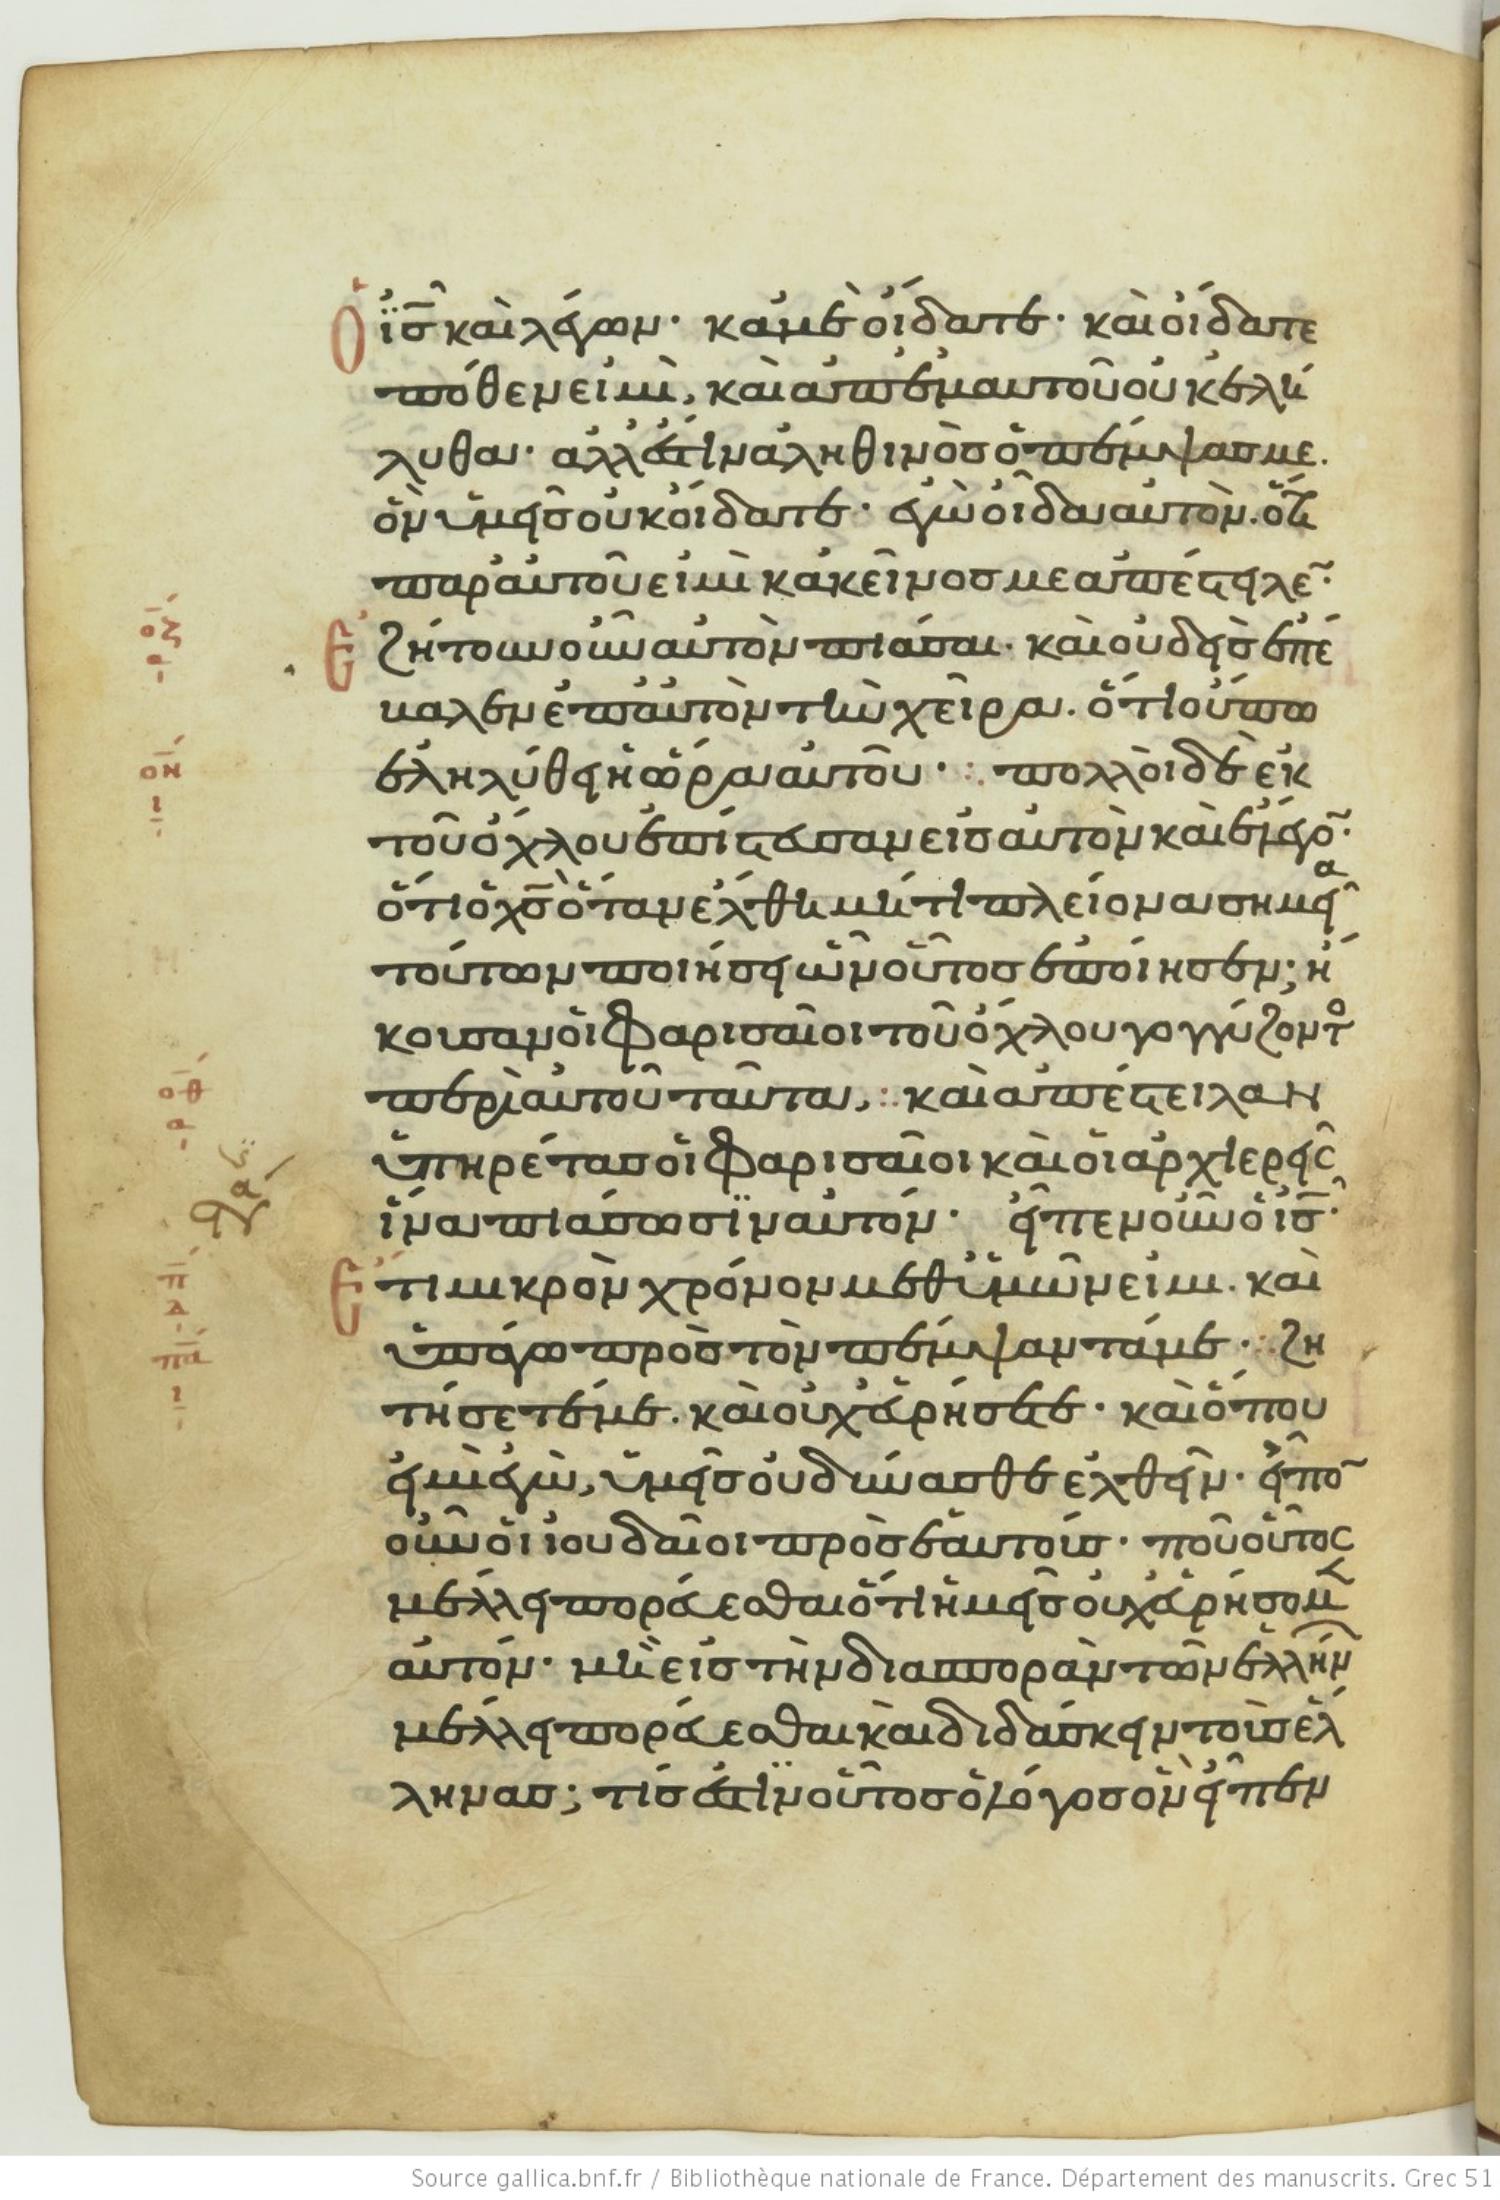 ὁ ἰ̅σ̅ καὶ λέγων· κἀμὲ οἴδατε· καὶ οἴδατε
πόθεν εἰμὶ, καὶ ἀπ' ἐμαυτοῦ οὐκ ἐλή
λυθα· ἀλλ' ἔστιν ἀληθινὸσ ὁ πέμψασ με.
ὃν ὑμεῖσ οὐκ οἴδατε· ἐγὼ οἶδα αὐτὸν. ὅτι
παρ' αὐτοῦ εἰμὶ κἀκεῖνοσ με ἀπέστειλε̅·
Ἐζήτουν οὖν αὐτὸν πιάσαι· καὶ οὐδεὶσ ἐπέ
βαλεν ἐπ' αὐτὸν τὴν χεῖρα. ὅτι οὔπω
ἐληλύθει ἡ ὥρα αὐτοῦ· πολλοὶ δὲ ἐκ
τοῦ ὄχλου ἐπίστευσαν εἰσ αὐτὸν καὶ ἔλεγο̅·
ὅτι ὁ χ̅σ̅ ὅταν ἔλθη μήτι πλείονα σημεῖα
τούτων ποιήσει ὧν οὗτοσ ἐποίησεν; ἤ
κουσαν οἱ φαρισαῖοι τοῦ ὄχλου γογγύζοντο
περὶ αὐτοῦ ταῦτα, καὶ ἀπέστειλαν
ὑπηρέτασ οἱ φαρισαῖοι καὶ οἱ ἀρχιερεῖς
ἵνα πιάσωσϊν αὐτόν· εἶπεν οὖν ὁ ἰ̅σ̅·
Ἔτι μικρὸν χρόνον μεθ' ὑμῶν εἰμι. καὶ
ὑπάγω πρὸσ τὸν πέμψαντά με· ζη
τήσετέ με. καὶ οὐχ εὑρήσετε· καὶ ὅπου
εἰμὶ ἐγὼ, ὑμεῖσ οὐ δύνασθε ἐλθεῖν· εἶπο̅
οὖν οἱ ἰουδαῖοι πρὸσ ἑαυτούσ· ποῦ οὗτος
μέλλει πορεύεσθαι ὅτι ἡμεῖσ οὐχ εὑρήσομ
αὐτόν· μὴ εἰσ τὴν διασπορὰν τῶν ἑλλήν
μέλλει πορεύεσθαι καὶ διδάσκειν τοὺσ ἕλ
ληνασ; τίσ ἐστϊν οὗτοσ ὁ λόγοσ ὃν εἶπεν
ο̅ζ̅
ο̅η̅
ο̅θ̅
π̅
π̅α̅
Source gallica.bnf.fr / Bibliothèque nationale de France. Département des manuscrits. Grec 51